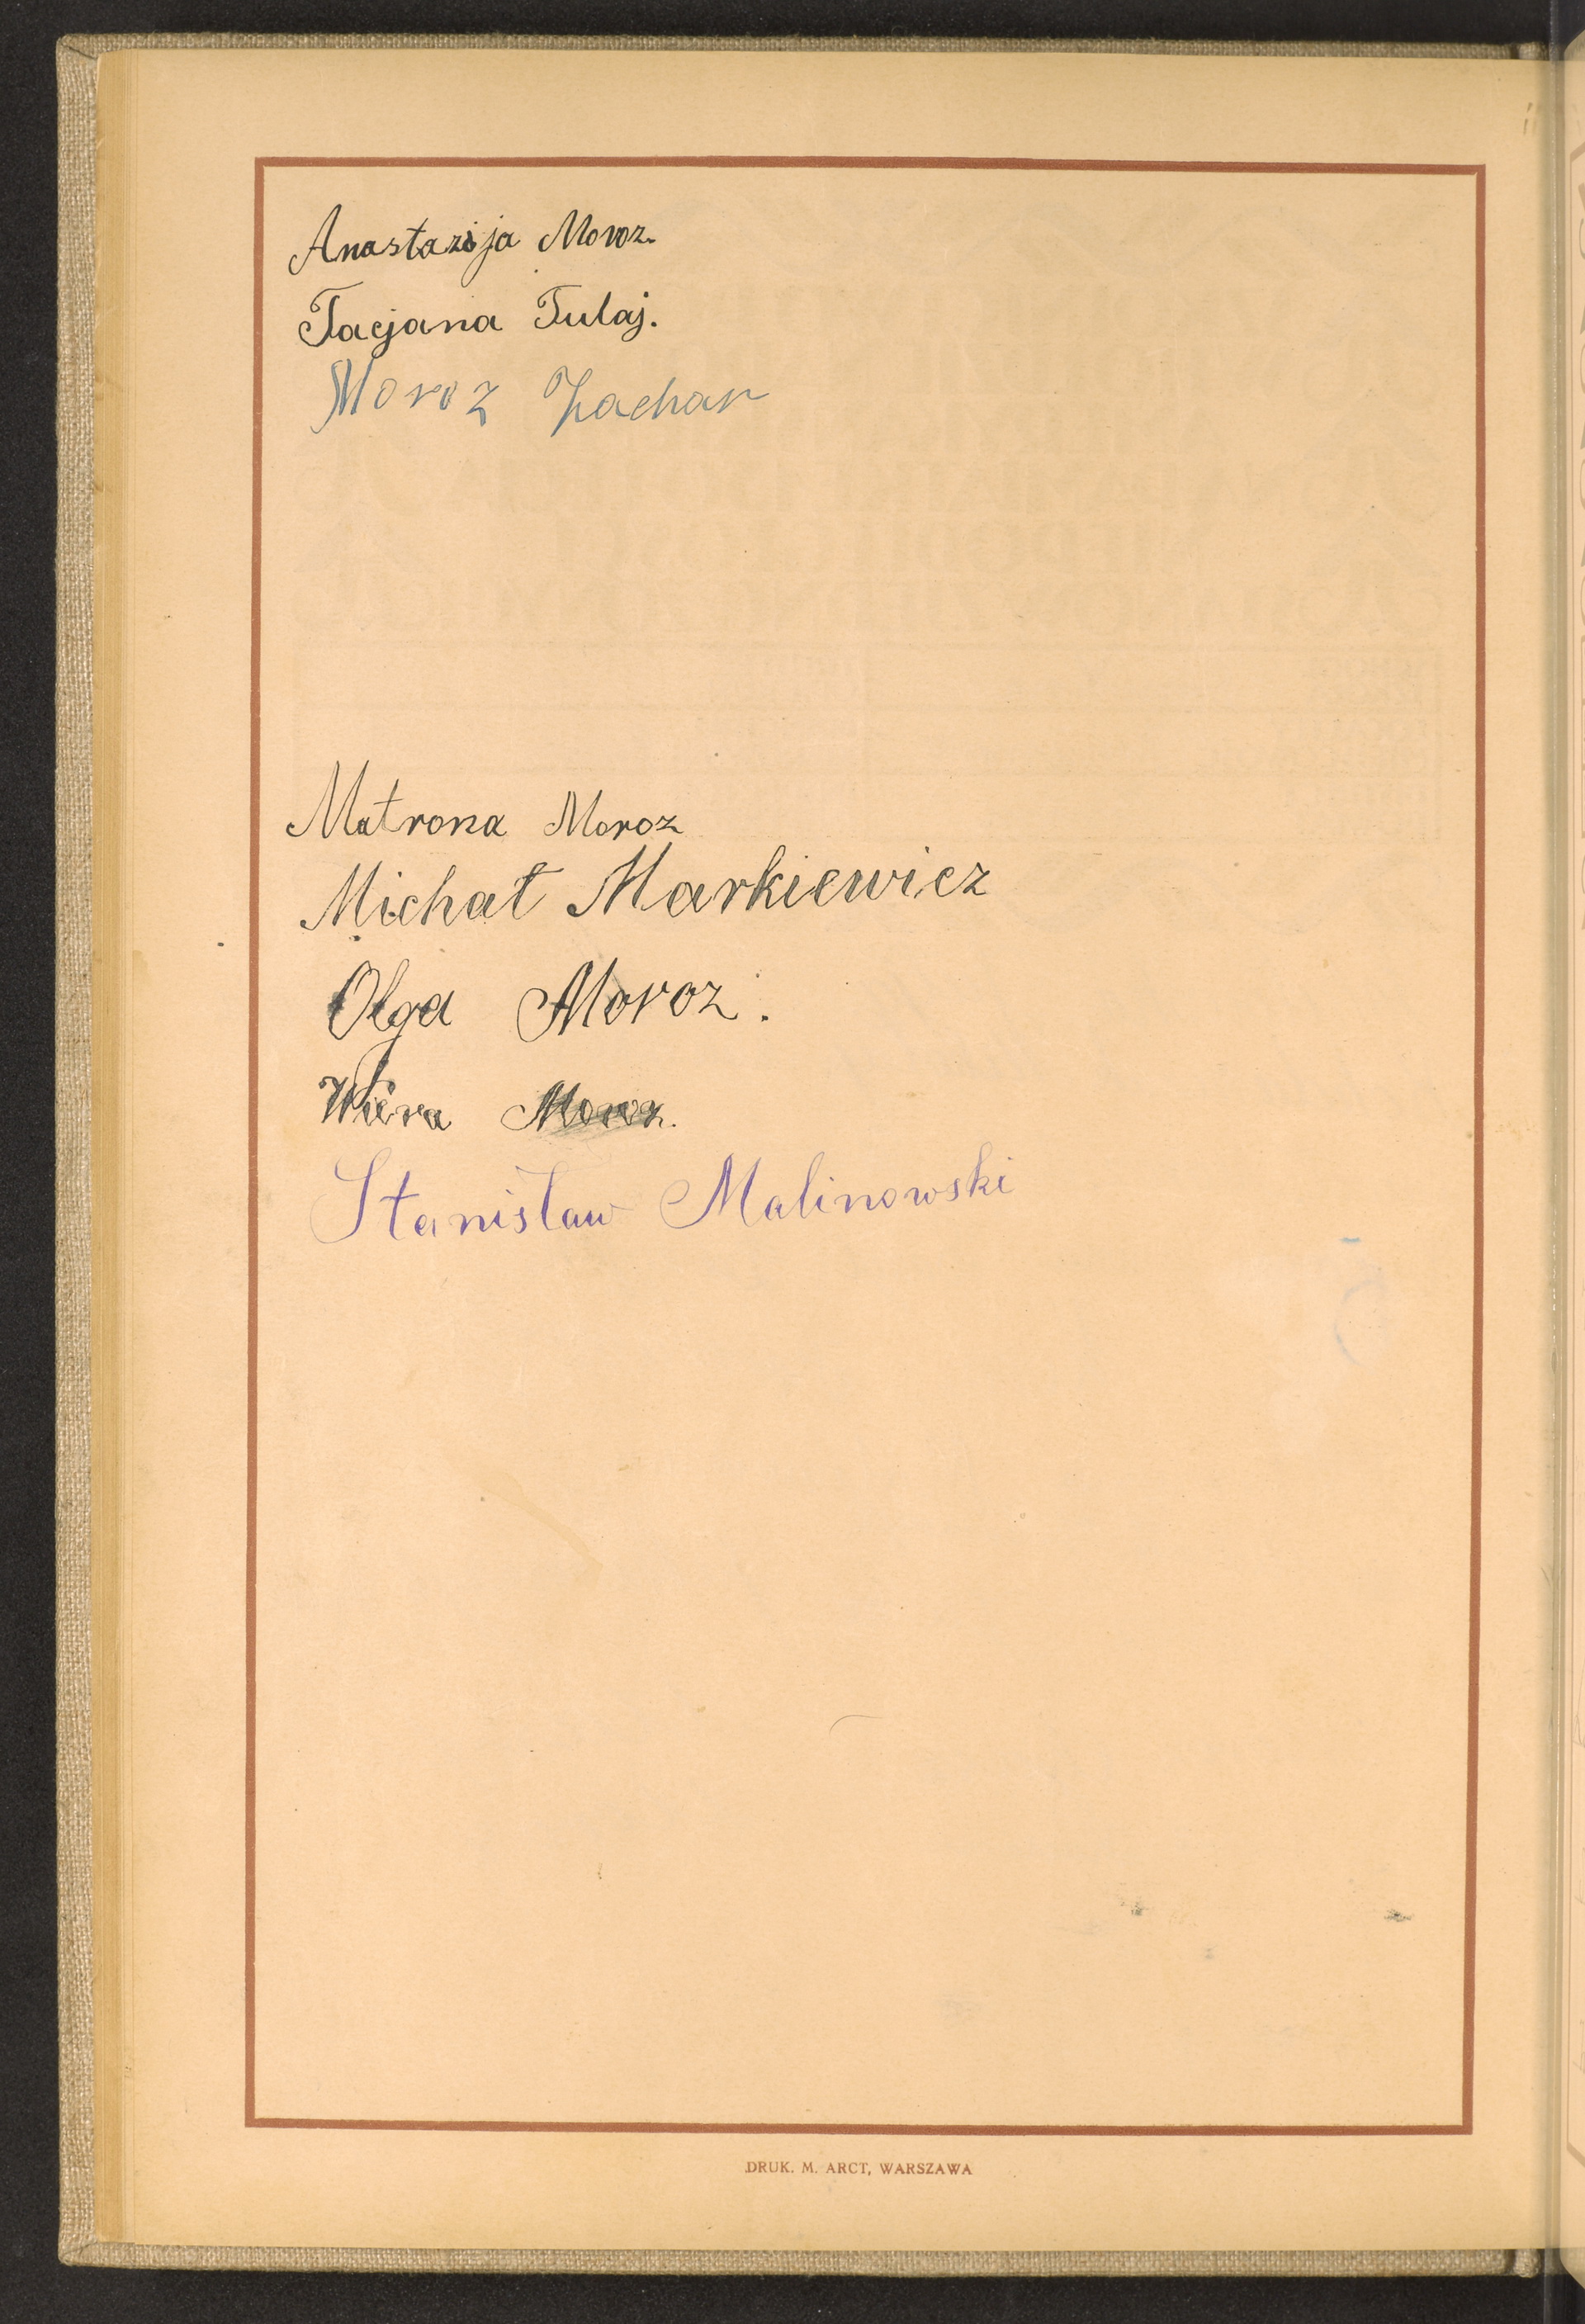 Anastazija Moroz.
Tacjana Tulaj.
Moroz Zachar
Matrona Moroz
Michał Markiewicz
Olga Moroz.
Wiera Moroz.
Stanisław Malinowski
DRUK. M. ARCT, WARSZAWA